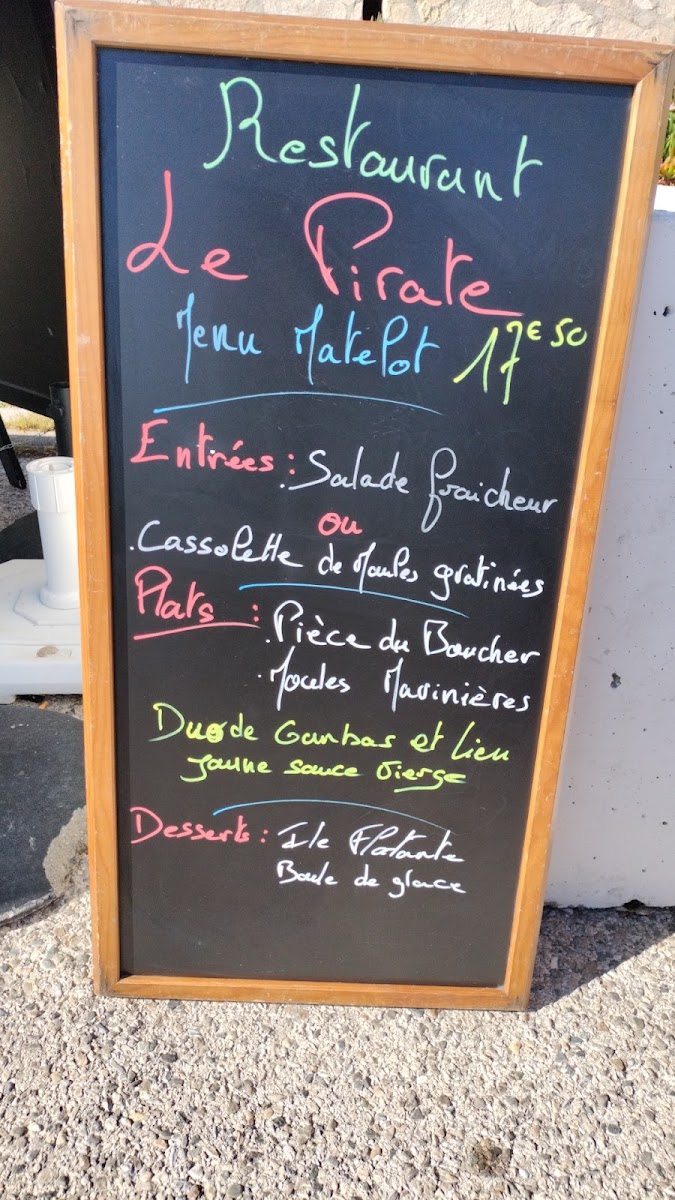 Restaurant
Le Pirate
Menu Matelot 17€50
Entrées : . Salade fraicheur
ou
. Cassolette de Moules gratinées
Plats : . Pièce du Boucher
. Moules Marinières
Duo de Gambas et Lieu
jaune sauce vierge
Desserts : Ile Flotante
Boule de glace